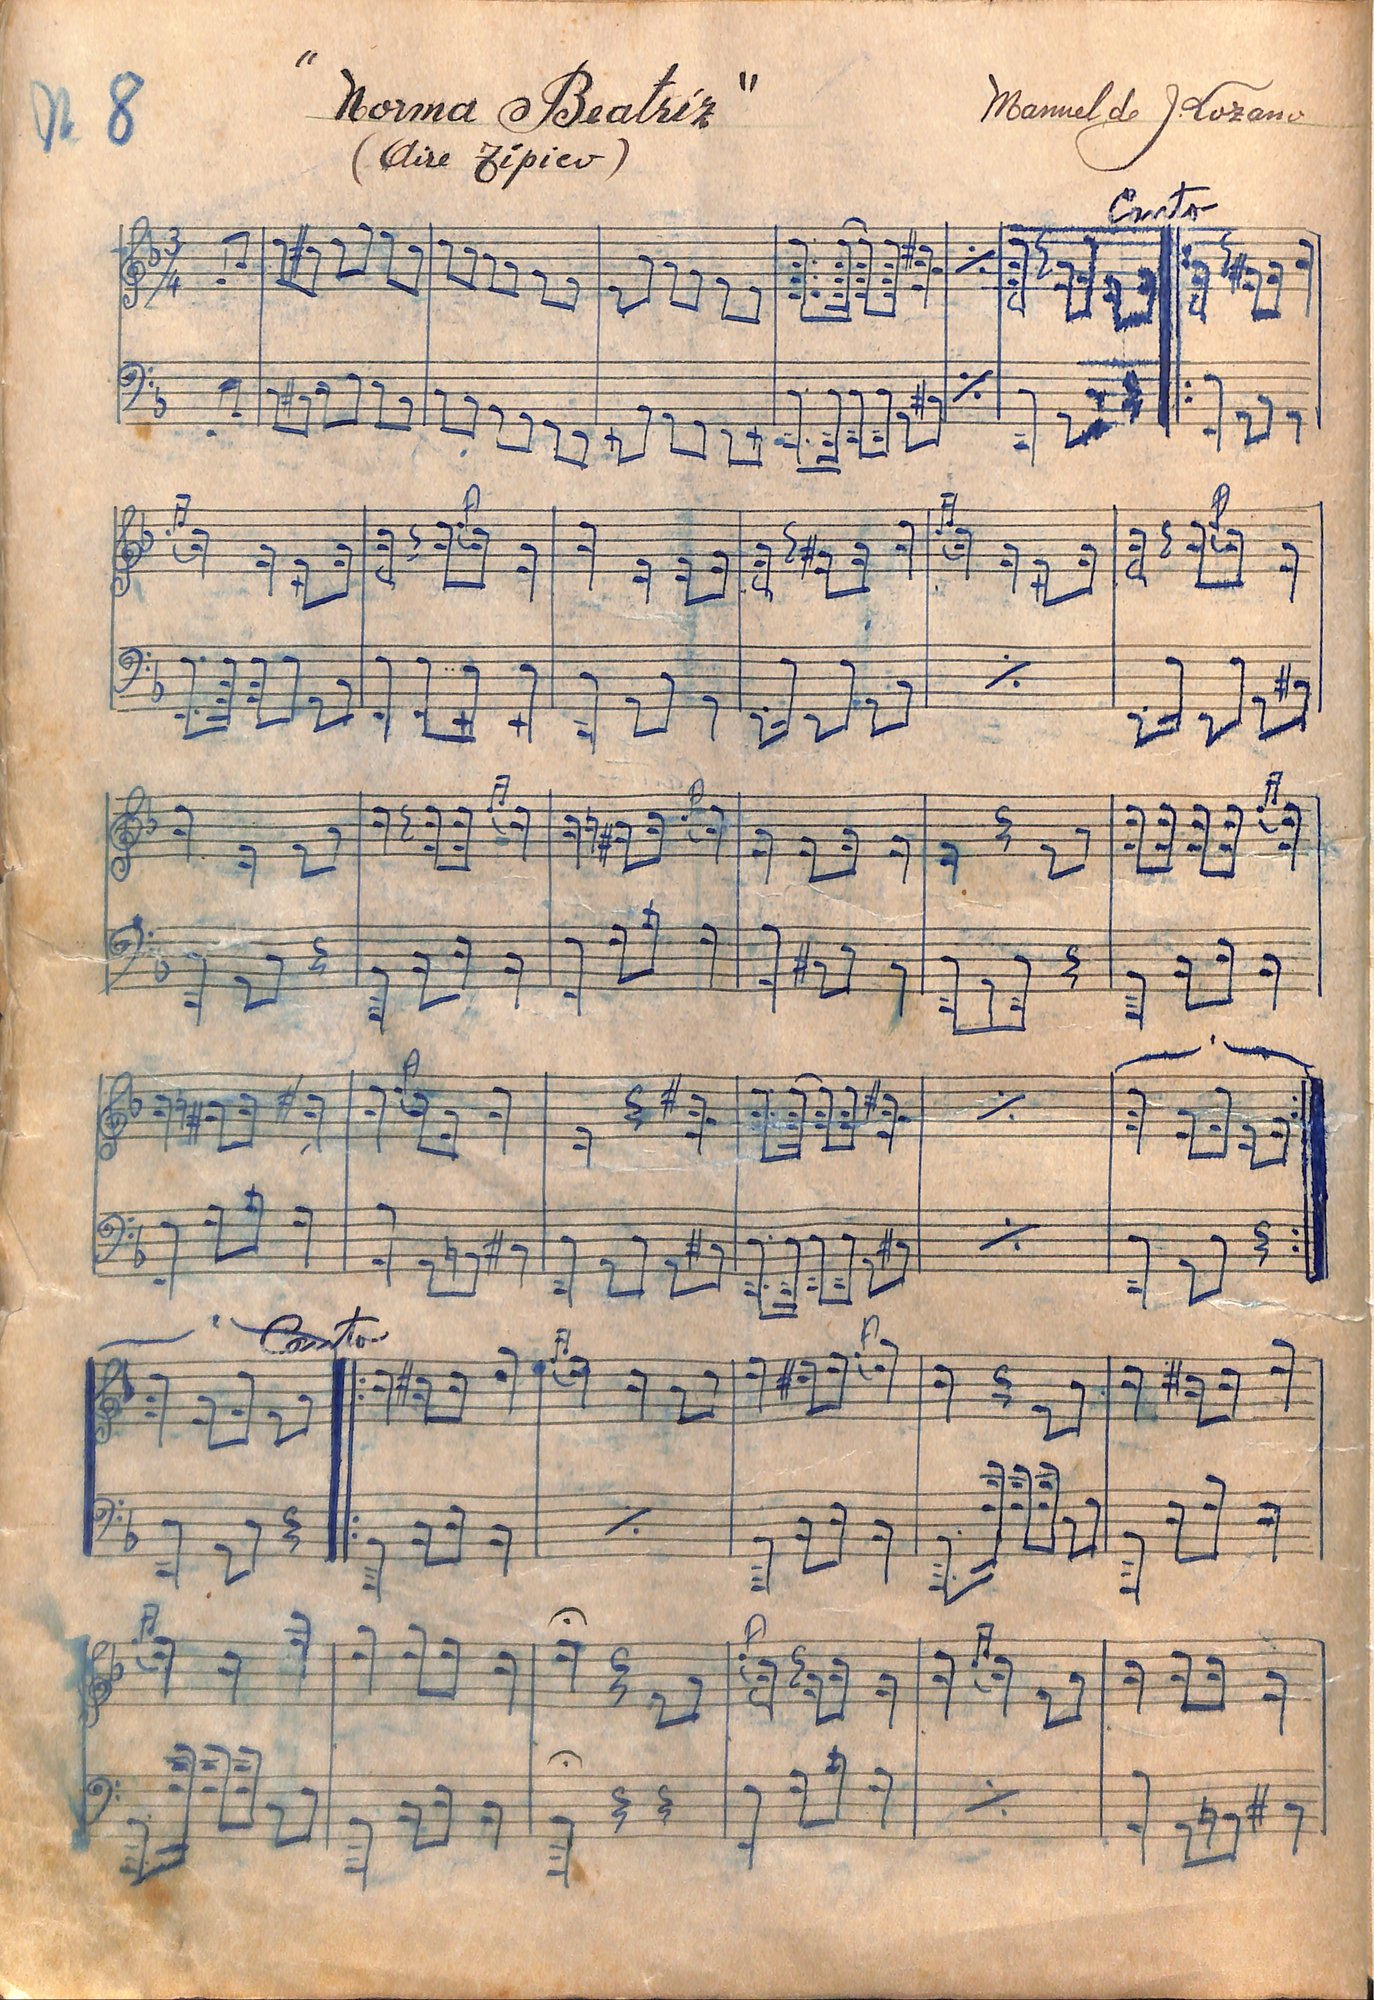 Nº 8
"Norma Beatriz"
(Aire Típico)
Manuel de J. Lozano
Canto
3/4
Canto